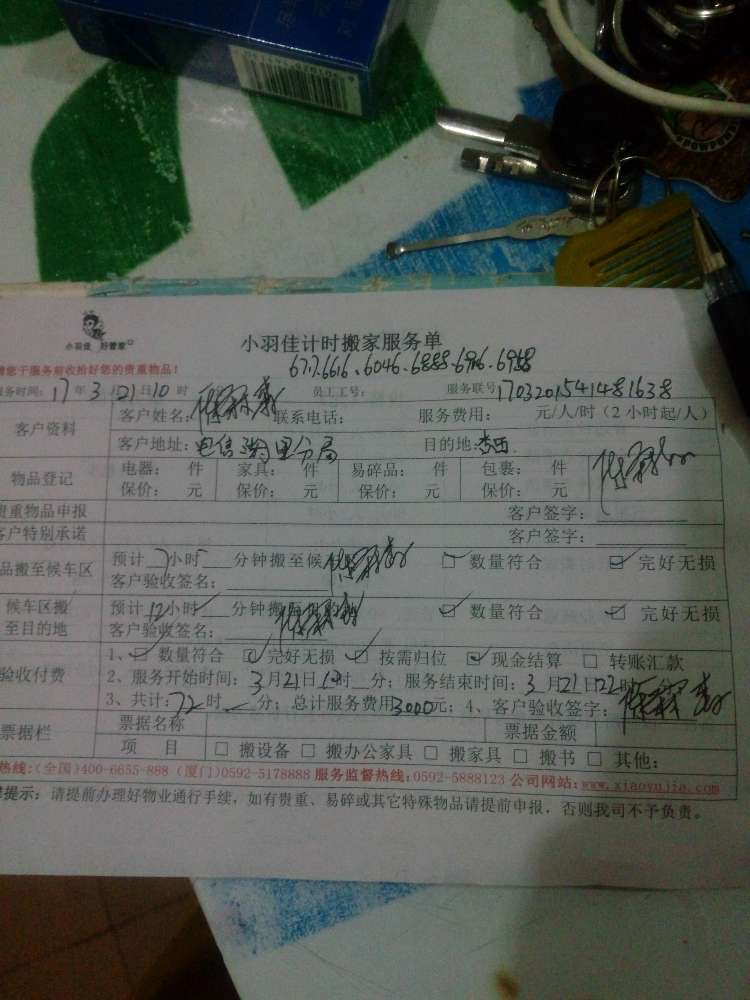 小羽佳 好管家
小羽佳计时搬家服务单
6717.6616.6046.6888.6916.6988
请您于服务前收拾好您的贵重物品！
服务时间：17年3月21日10时 分 员工工号： 服务联号1703201541481638
客户资料
客户姓名： 联系电话： 服务费用： 元/人/时（2小时起/人）
客户地址：电信 里分局 目的地：杏西
物品登记
电器： 件 家具： 件 易碎品： 件 包裹： 件
保价： 元 保价： 元 保价： 元 保价： 元
贵重物品申报 客户签字：
客户特别承诺 客户签字：
品搬至候车区
预计7小时 分钟搬至候 □ 数量符合 ☑ 完好无损
客户验收签名：
候车区搬至目的地
预计12小时 分钟搬至目的地 ☑ 数量符合 ☑ 完好无损
客户验收签名：
验收付费
1、☑ 数量符合 ☑ 完好无损 ☑ 按需归位 ☑ 现金结算 □ 转账汇款
2、服务开始时间：3月21日10时 分；服务结束时间：3月21日22时 分
3、共计：72时 分；总计服务费用3000元；4、客户验收签字：
票据栏
票据名称 票据金额
项 目 □ 搬设备 □ 搬办公家具 □ 搬家具 □ 搬书 □ 其他：
热线：(全国)400-6655-888 (厦门)0592-5178888 服务监督热线：0592-5888123 公司网站：www.xiaoyujia.com
提示：请提前办理好物业通行手续，如有贵重、易碎或其它特殊物品请提前申报，否则我司不予负责。